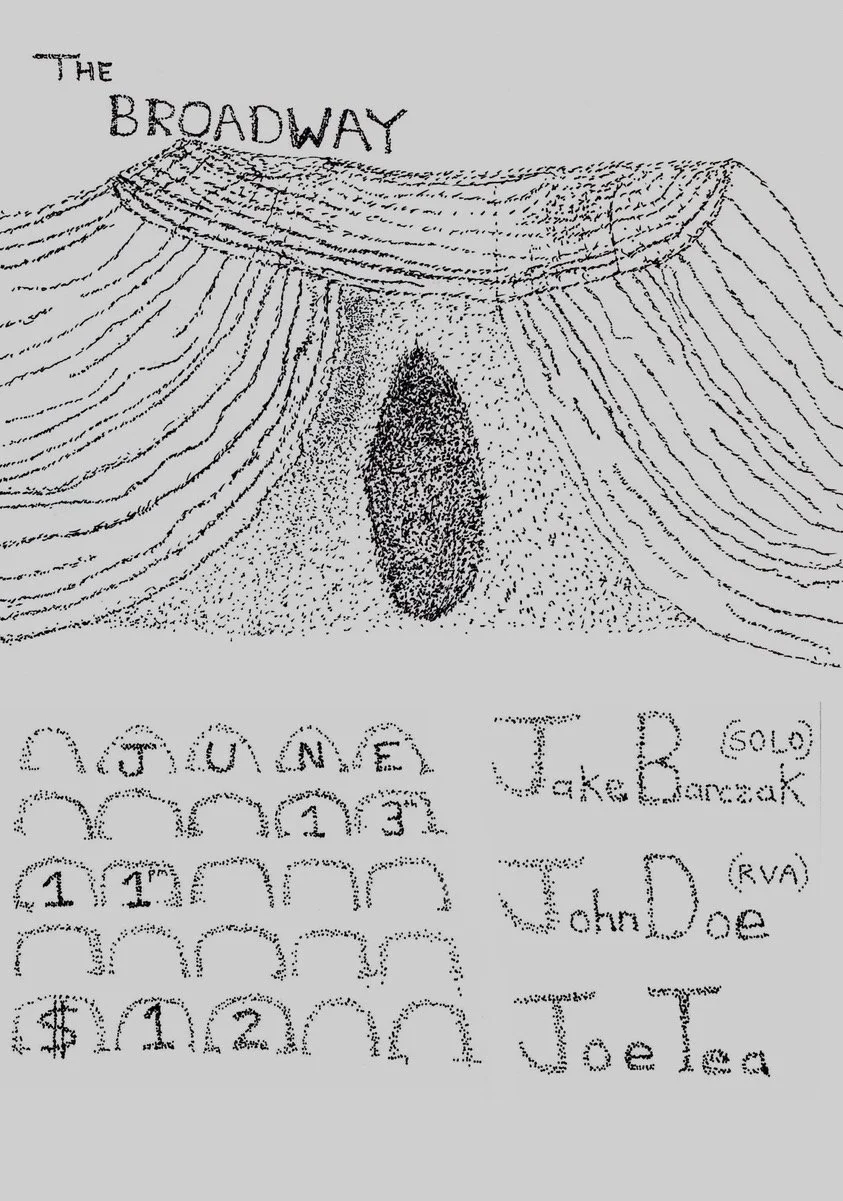 THE
BROADWAY
JUNE
13th
11pm
$12
(SOLO)
Jake Barczak
(RVA)
John Doe
Joe Tea